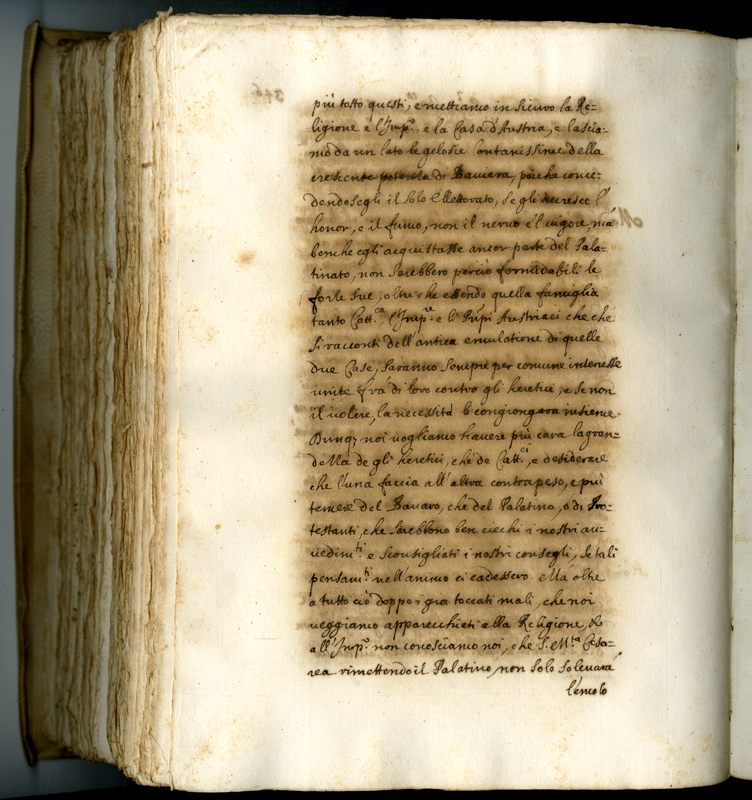 più tosto questi, e mettiamo in sicuro la Re=
ligione e l'Imp.º, e la Casa d'Austria, e lascia=
mo da un lato le gelosie lontanissime della
crescente potenza di Baviera, poiche conce=
dendosegli il solo Elettorato, se gli accresce l'
honor, e il fumo, non il nervo e'l vigore, ma
benche egli acquistasse ancor parte del Pala=
tinato, non sarebbero perciò formidabili le
forze sue, oltre che essendo quella famiglia
tanto Catt.ca, l'Imp.re e li Prìpi Austriaci che che
si racconti dell'antica emulatione di quelle
due Case, saranno sempre per comune interesse
unite frà di loro contro gli heretici, e se non
il volere, la necessità le congiongerà insieme.
Dunq; noi vogliamo havere più cara la gran=
dezza de gli heretici, che de Catt.ci, e desiderare
che l'una faccia all'altra contrapeso, e più
temere del Bavaro, che del Palatino, o di Pro=
testanti, che sarebbono ben ciechi i nostri av=
vedim.ti e sconsigliati i nostri consegli, se tali
pensam.ti nell'animo ci cadessero. Mà oltre
a tutto ciò doppo i gia toccati mali, che noi
veggiamo apparecchiati alla Religione, &
all'Imp.º non conosciamo noi, che S. M.tà Cesa=
rea rimettendo il Palatino, non solo solevarà
l'emolo